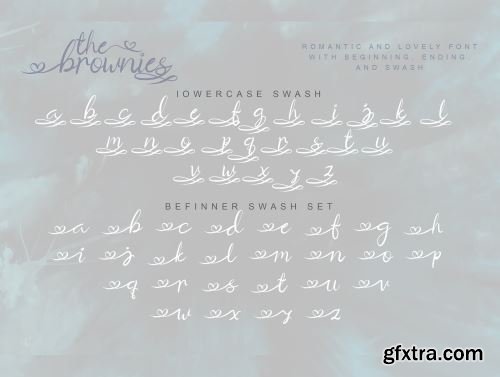 the
brownies
ROMANTIC AND LOVELY FONT
WITH BEGINNING, ENDING,
AND SWASH
lOWERCASE SWASH
a b c d e f g h i j k l
m n o p q r s t u
v w x y z
BEFINNER SWASH SET
a b c d e f g h
i j k l m n o p
q r s t u v
w x y z
gfxtra.com